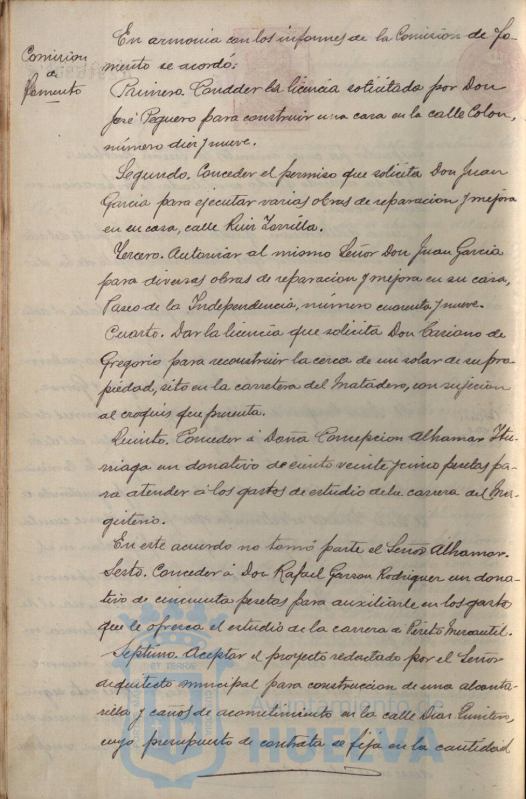 Comision
de
Fomento
En armonia con los informes de la Comision de Fo-
mento se acordó:
Primero. Conceder la licencia solicitada por Don
José Peguero para construir una casa en la calle Colon,
número diez y nueve.
Segundo. Conceder el permiso que solicita Don Juan
Garcia para ejecutar varias obras de reparacion y mejora
en su casa, calle Ruiz Zorrilla.
Tercero. Autorizar al mismo Señor Don Juan Garcia
para diversas obras de reparacion y mejora en su casa,
Paseo de la Independencia, número cuarenta y nueve.
Cuarto. Dar la licencia que solicita Don Casiano de
Gregorio para reconstruir la cerca de un solar de su pro-
piedad, sito en la carretera del Matadero, con sujecion
al croquis que presenta.
Quinto. Conceder á Doña Concepcion Alhamar Itu-
rriaga un donativo de ciento veinte y cinco pesetas pa-
ra atender á los gastos de estudio de la carrera del Ma-
gisterio.
En este acuerdo no tomó parte el Señor Alhamar.
Sesto. Conceder á Don Rafael Garzon Rodriguez un dona-
tivo de cincuenta pesetas para auxiliarle en los gastos
que le ofrezca el estudio de la carrera de Perito Mercantil.
Septimo. Aceptar el proyecto redactado por el Señor
Arquitecto municipal para construccion de una alcanta-
rilla y caños de acometimiento en la calle Diaz
cuyo presupuesto de contrata se fija en la cantidad
Ayuntamiento de
HUELVA